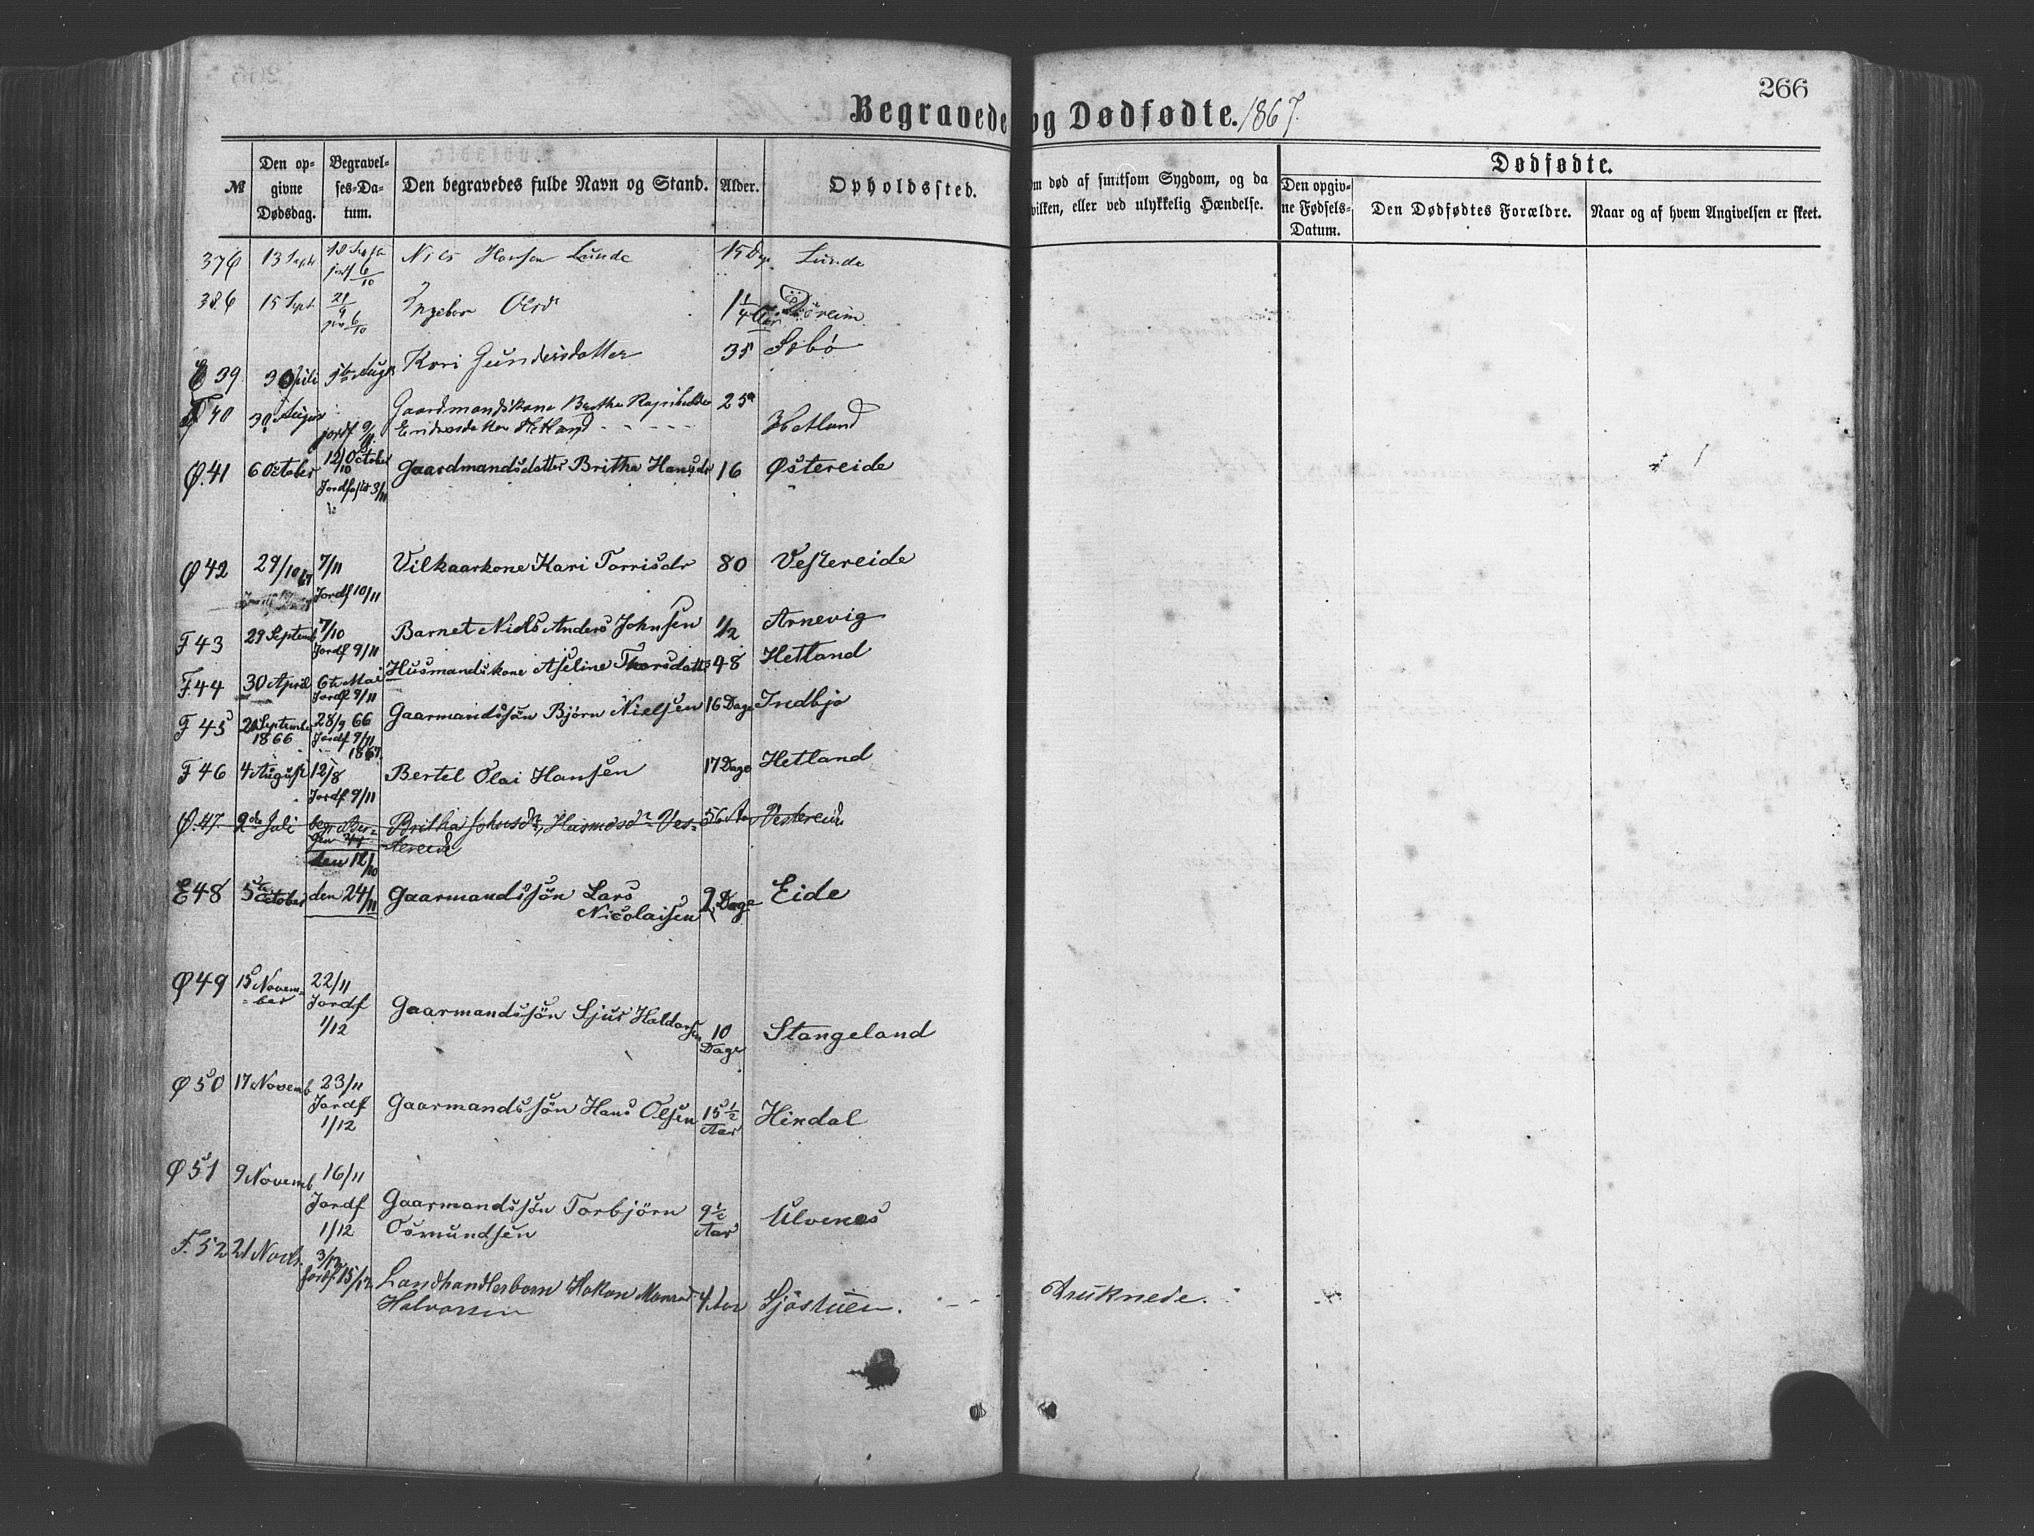 266
Begravede og Dødfødte. 1867.
№
Den opgivne Dødsdag.
Begravelses-Datum.
Den begravedes fulde Navn og Stand.
Alder.
Opholdssted.
Om død af smitsom Sygdom, og da
hvilken, eller ved ulykkelig Hændelse.
Dødfødte.
Den opgivne Fødsels-Datum.
Den Dødfødtes Forældre.
Naar og af hvem Angivelsen er skeet.
376 13 Sept 18 Sept jordf 6/10 Nils Hansen Lunde 15 Dge Lunde
386 15 Sept 21/9 6/10 Ingebor Olsd 1 1/4 Aar
E 39 Kari Gundersdatter 35 Sæbø
F 40 30 Gaardmandskone Brithe
Eriksdatter Hetland 25 Hetland
jordf 9/11
Ø.41 6 October 12/10 October Gaardmandsdatter Britha Hansdr 16 Østereide
Jordfæst 3/11
Ø 42 29/10 67 7/11 Vilkaarkone Kari Torrisdr 80 Vestereide
Jordf 10/11
F 43 29 Septemb 7/10 Barnet Niels Anders Johnsen 1/2 Arnevig
Jordf 9/11
F.44 30 April 6te Mai Husmandskone Aseline Thorsdatte 48 Hetland
Jordf 9/11
F 45 September 1866 28/9 66 Gaarmandssön Bjørn Nielsen 16 Dage Indbjo
Jordf 9/11 1867.
F 46 4 August 12/8 Bertel Olai Hansen 17 Dage Hetland
Jordf 9/11
Ø.47. 2den Juli Britha Johnsdr, Husmdsdr Vestereide 56 Vestereide
den 12/10
E 48 5te October den 24/11 Gaarmandssön Lars
Nicolaisen 2 Dage Eide
Ø 49 15 November 22/11
Jordf
1/12 Gaarmandssön Sjur Haldorsen 10 Dage Stangeland
Ø 50 17 Novemb 23/11
Jordf
1/12 Gaarmandssön Hans Olsen 15 1/2 Aar Hindal
Ø 51 9 Novemb 16/11
Jordf
1/12 Gaarmandssön Torbjörn
Osmundsen 9 1/2 Aar Ulvenes
F. 52 21 Novbr. 3/12
Jordf 15/12 Landhandlerbarn Hakon Monrad
Halvorsen 4 Aar Sjöstuen. druknede.